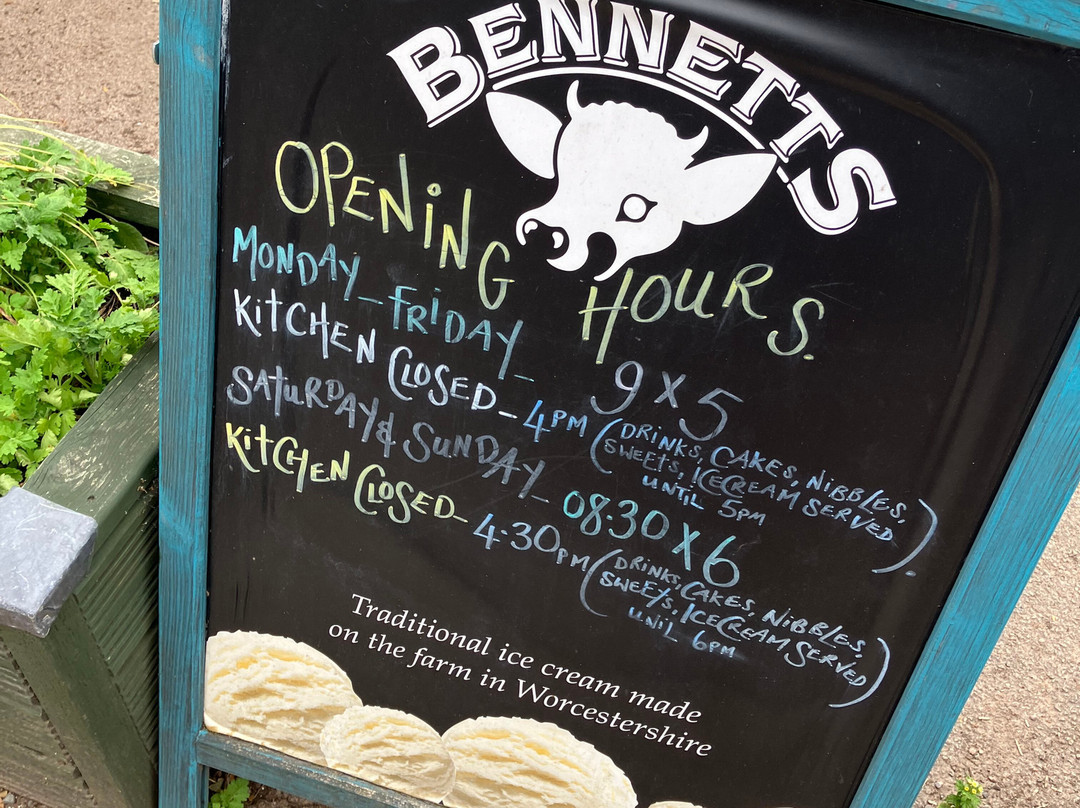 BENNETTS
OPENiNG HOURS.
MONDAY – FRiDAY – 9 X 5
KitCHEN CLOSED – 4PM (DRINKS, CAKES, NiBBLES,
SWEETS, ICECREAM SERVED
UNTIL 5PM).
SATURDAY & SUNDAY – 08.30 X 6
KitCHEN CLOSED – 4.30PM (DRINKS, CAKES, NIBBLES,
SWEETS, ICECREAM SERVED
UNIL 6PM)
Traditional ice cream made
on the farm in Worcestershire